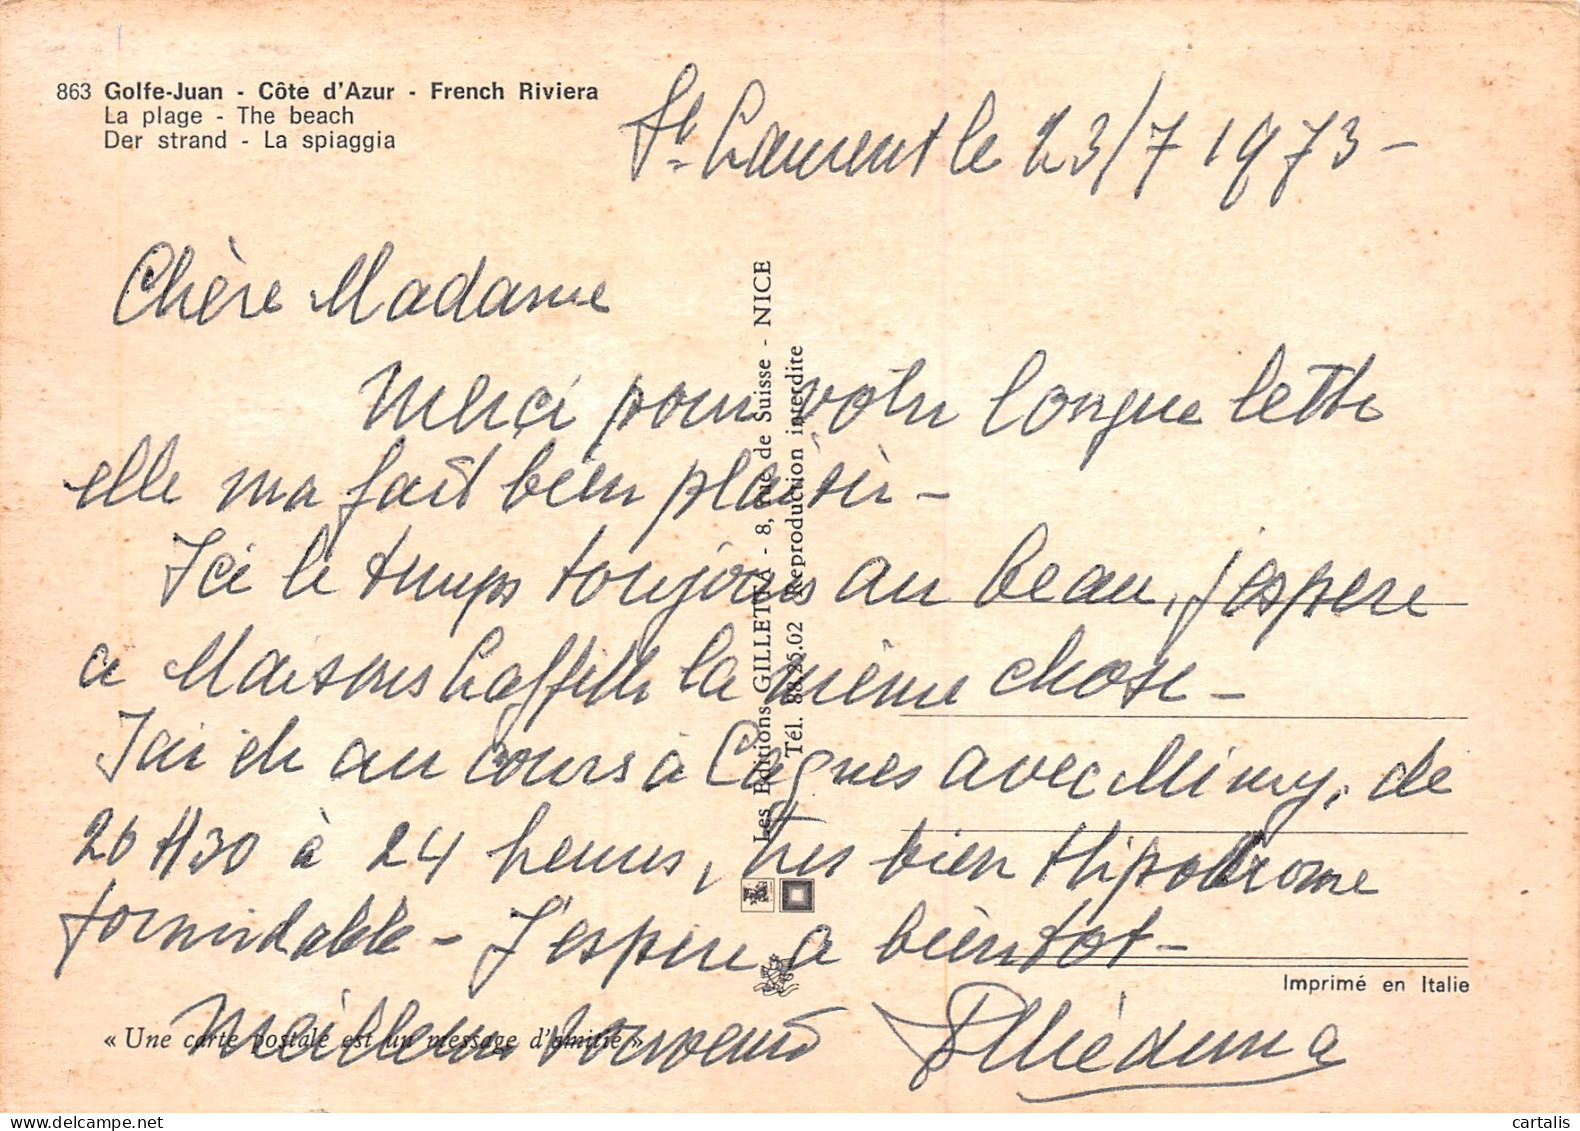 863 Golfe-Juan - Côte d'Azur - French Riviera
La plage - The beach
Der strand - La spiaggia
St Laurent le 23/7 1973 -
Chère Madame
Merci pour votre longue lettre
elle ma fait bien plaisir -
Ici le temps toujours au beau, j'espere
a Maisons Laffitte la même chose -
J'ai été au cours à Cagnes avec Mimy, de
20 H30 à 24 heures, tres bien Hipodrome
formidable - J'espere a bientot -
Meilleur souvenir
Les Editions GILLETTA - 8, rue de Suisse - NICE
Tél. 88.25.02 Reproduction interdite
Imprimé en Italie
« Une carte postale est un message d'amitié »
cartalis